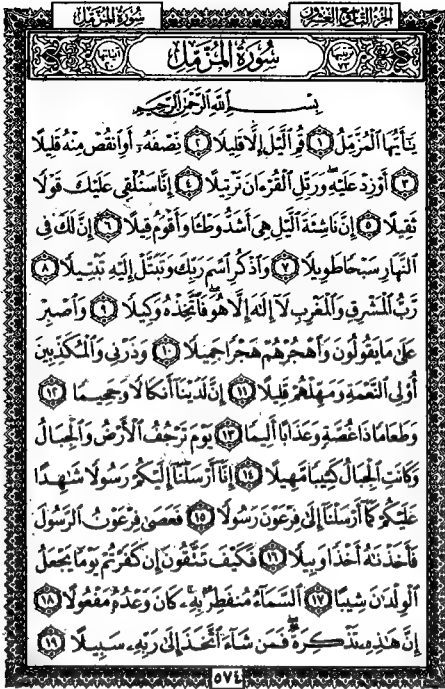 الجزء التاسع والعشرون سورة المزمل
ترتيبها ٧٣ سورة المزمل آياتها
بسم الله الرحمن الرحيم
يَٰٓأَيُّهَا ٱلْمُزَّمِّلُ ١ قُمِ ٱلَّيْلَ إِلَّا قَلِيلًا ٢ نِّصْفَهُۥٓ أَوِ ٱنقُصْ مِنْهُ قَلِيلًا
٣ أَوْ زِدْ عَلَيْهِ وَرَتِّلِ ٱلْقُرْءَانَ تَرْتِيلًا ٤ إِنَّا سَنُلْقِى عَلَيْكَ قَوْلًا
ثَقِيلًا ٥ إِنَّ نَاشِئَةَ ٱلَّيْلِ هِىَ أَشَدُّ وَطْـًٔا وَأَقْوَمُ قِيلًا ٦ إِنَّ لَكَ فِى
ٱلنَّهَارِ سَبْحًا طَوِيلًا ٧ وَٱذْكُرِ ٱسْمَ رَبِّكَ وَتَبَتَّلْ إِلَيْهِ تَبْتِيلًا ٨
رَّبُّ ٱلْمَشْرِقِ وَٱلْمَغْرِبِ لَآ إِلَٰهَ إِلَّا هُوَ فَٱتَّخِذْهُ وَكِيلًا ٩ وَٱصْبِرْ
عَلَىٰ مَا يَقُولُونَ وَٱهْجُرْهُمْ هَجْرًا جَمِيلًا ١٠ وَذَرْنِى وَٱلْمُكَذِّبِينَ
أُو۟لِى ٱلنَّعْمَةِ وَمَهِّلْهُمْ قَلِيلًا ١١ إِنَّ لَدَيْنَآ أَنكَالًا وَجَحِيمًا ١٢
وَطَعَامًا ذَا غُصَّةٍ وَعَذَابًا أَلِيمًا ١٣ يَوْمَ تَرْجُفُ ٱلْأَرْضُ وَٱلْجِبَالُ
وَكَانَتِ ٱلْجِبَالُ كَثِيبًا مَّهِيلًا ١٤ إِنَّآ أَرْسَلْنَآ إِلَيْكُمْ رَسُولًا شَٰهِدًا
عَلَيْكُمْ كَمَآ أَرْسَلْنَآ إِلَىٰ فِرْعَوْنَ رَسُولًا ١٥ فَعَصَىٰ فِرْعَوْنُ ٱلرَّسُولَ
فَأَخَذْنَٰهُ أَخْذًا وَبِيلًا ١٦ فَكَيْفَ تَتَّقُونَ إِن كَفَرْتُمْ يَوْمًا يَجْعَلُ
ٱلْوِلْدَٰنَ شِيبًا ١٧ ٱلسَّمَآءُ مُنفَطِرٌۢ بِهِۦ كَانَ وَعْدُهُۥ مَفْعُولًا ١٨
إِنَّ هَٰذِهِۦ تَذْكِرَةٌ فَمَن شَآءَ ٱتَّخَذَ إِلَىٰ رَبِّهِۦ سَبِيلًا ١٩
٥٧٤